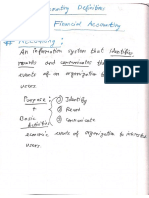 Definition
Financial Accounting
# Accounting :
An information system that identifies
records and communicates the
events of an organization to
users
Purpose :
+
Basic
① Identify
② Record
③ Communicate
economic events of organization to interested
users.